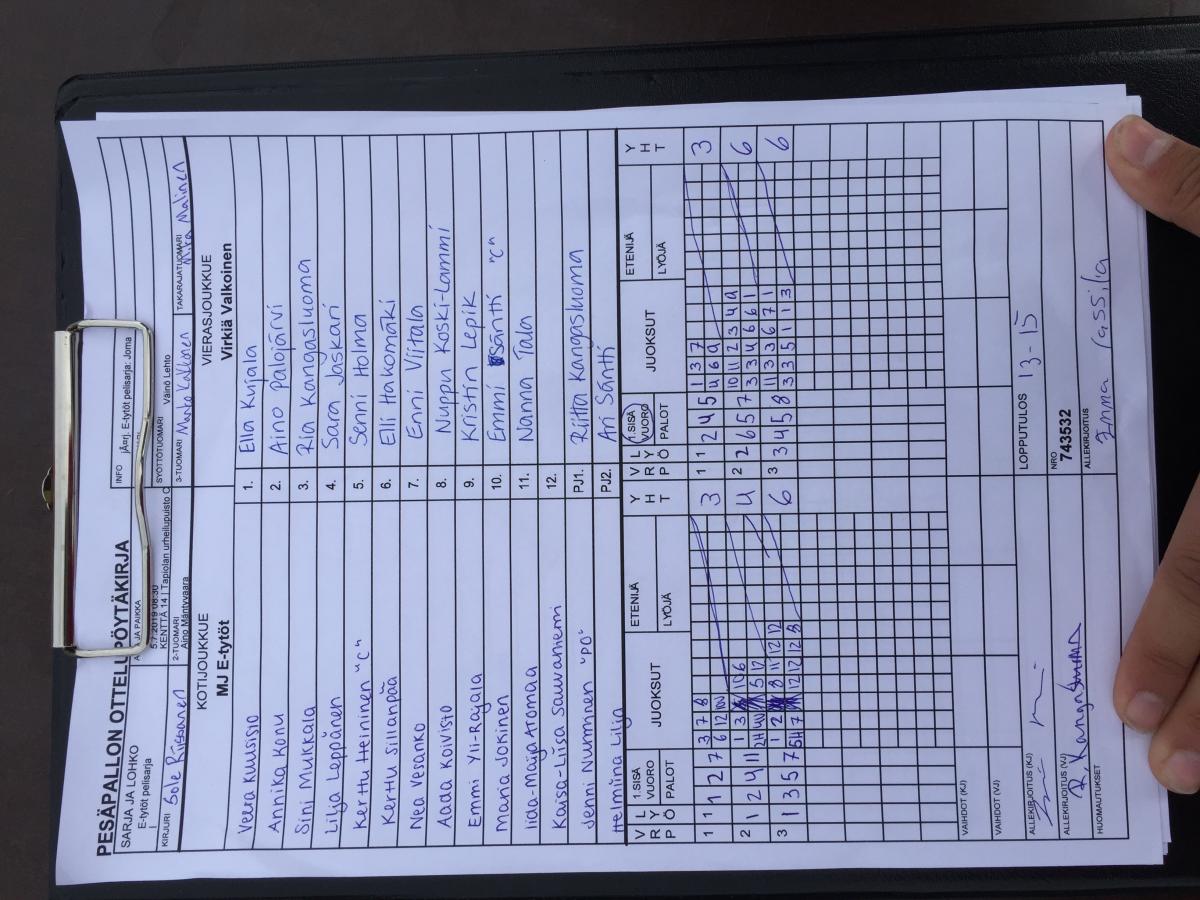 PESÄPALLON OTTELUPÖYTÄKIRJA
SARJA JA LOHKO
E-tytöt pelisarja
I
JA PAIKKA
5.7.2019 08:30
KENTTÄ 14 | Tapiolan urheilupuisto
INFO
E-tytöt pelisarja: Joma
KIRJURI Sole
2-TUOMARI
Aino Mäntyvaara
SYÖTTÖTUOMARI Väinö Lehto
3-TUOMARI
TAKARAJATUOMARI Malinen
KOTIJOUKKUE
MJ E-tytöt
VIERASJOUKKUE
Virkiä Valkoinen
Veera Kuusisto 1. Ella Kujala
Annika Konu 2. Aino Palojärvi
Sini Mukkala 3. Ria Kangasluoma
Lilja Leppänen 4. Sara Jaskari
Kerttu Heininen "C" 5. Senni Holma
Kerttu Sillanpää 6. Elli Hakomäki
Nea Vesanko 7. Enni Viitala
Aada Koivisto 8. Nuppu Koski-Lammi
Emmi Yli-Rajala 9. Kristin Lepik
Maria Jokinen 10. Emmi Säntti "C"
Iida-Maija Aromaa 11. Nanna Tala
Kaisa-Liisa Sauvamiemi 12.
Jenni Nurminen "PO" PJ1. Riitta Kangasluoma
Helmiina Lilja PJ2. Ari Säntti
V R P L Y Ö 1.SISÄ VUORO PALOT JUOKSUT ETENIJÄ LYÖJÄ Y H T V R P L Y Ö 1.SISÄ VUORO PALOT JUOKSUT ETENIJÄ LYÖJÄ Y H T
1 1 1 2 7 3 7 8 3 1 1 2 4 5 1 3 7 3
6 12
2 1 2 4 11 1 3 10 6 4 2 2 6 5 7 10 11 2 3 4 6
5 12 3 3 4 6 6 1
3 1 3 5 7 1 2 8 11 12 12 6 3 3 4 5 8 11 3 3 6 7 1 6
7 12 12 12 8 3 3 5 1 1 3
VAIHDOT (KJ)
VAIHDOT (VJ)
ALLEKIRJOITUS (KJ)
LOPPUTULOS 13-15
ALLEKIRJOITUS (VJ)
NRO
743532
HUOMAUTUKSET
ALLEKIRJOITUS
Emma